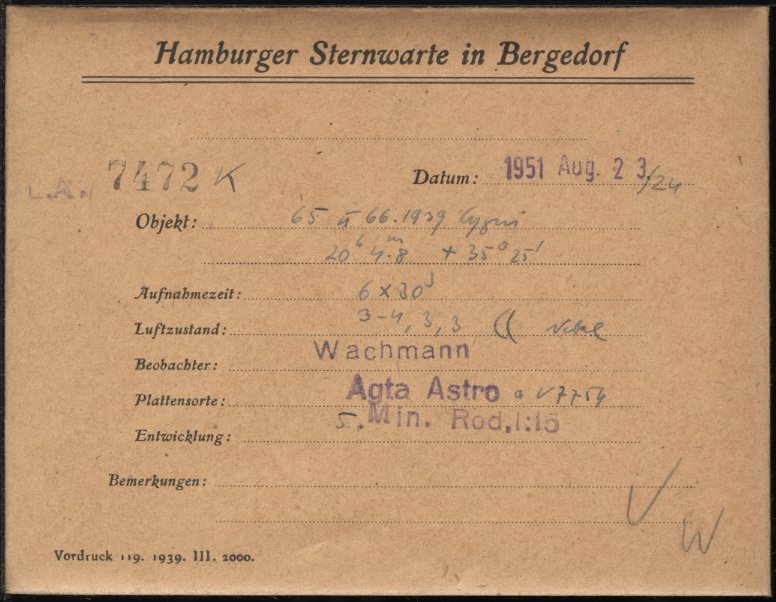 Hamburger Sternwarte in Bergedorf
L.A. 7472 K
Datum: 1951 Aug. 23/24
Objekt: 65 u 66.1939 Cygni
20h 4m.8 + 35° 25'
Aufnahmezeit: 6 x 30
Luftzustand: 3-4, 3, 3 (( Nebel
Beobachter: Wachmann
Plattensorte: Agfa Astro
Entwicklung: 5. Min. Rod. 1:15
Bemerkungen:
V
W
Vordruck 119. 1939. III. 2000.